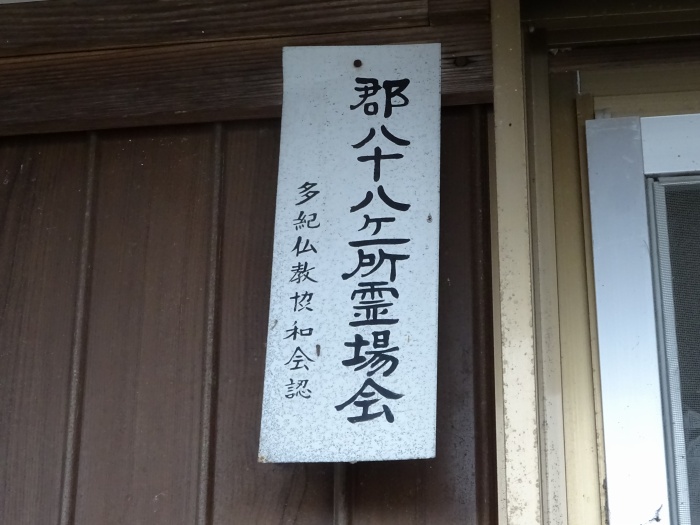 郡八十八ヶ所霊場会
多紀仏教協和会認